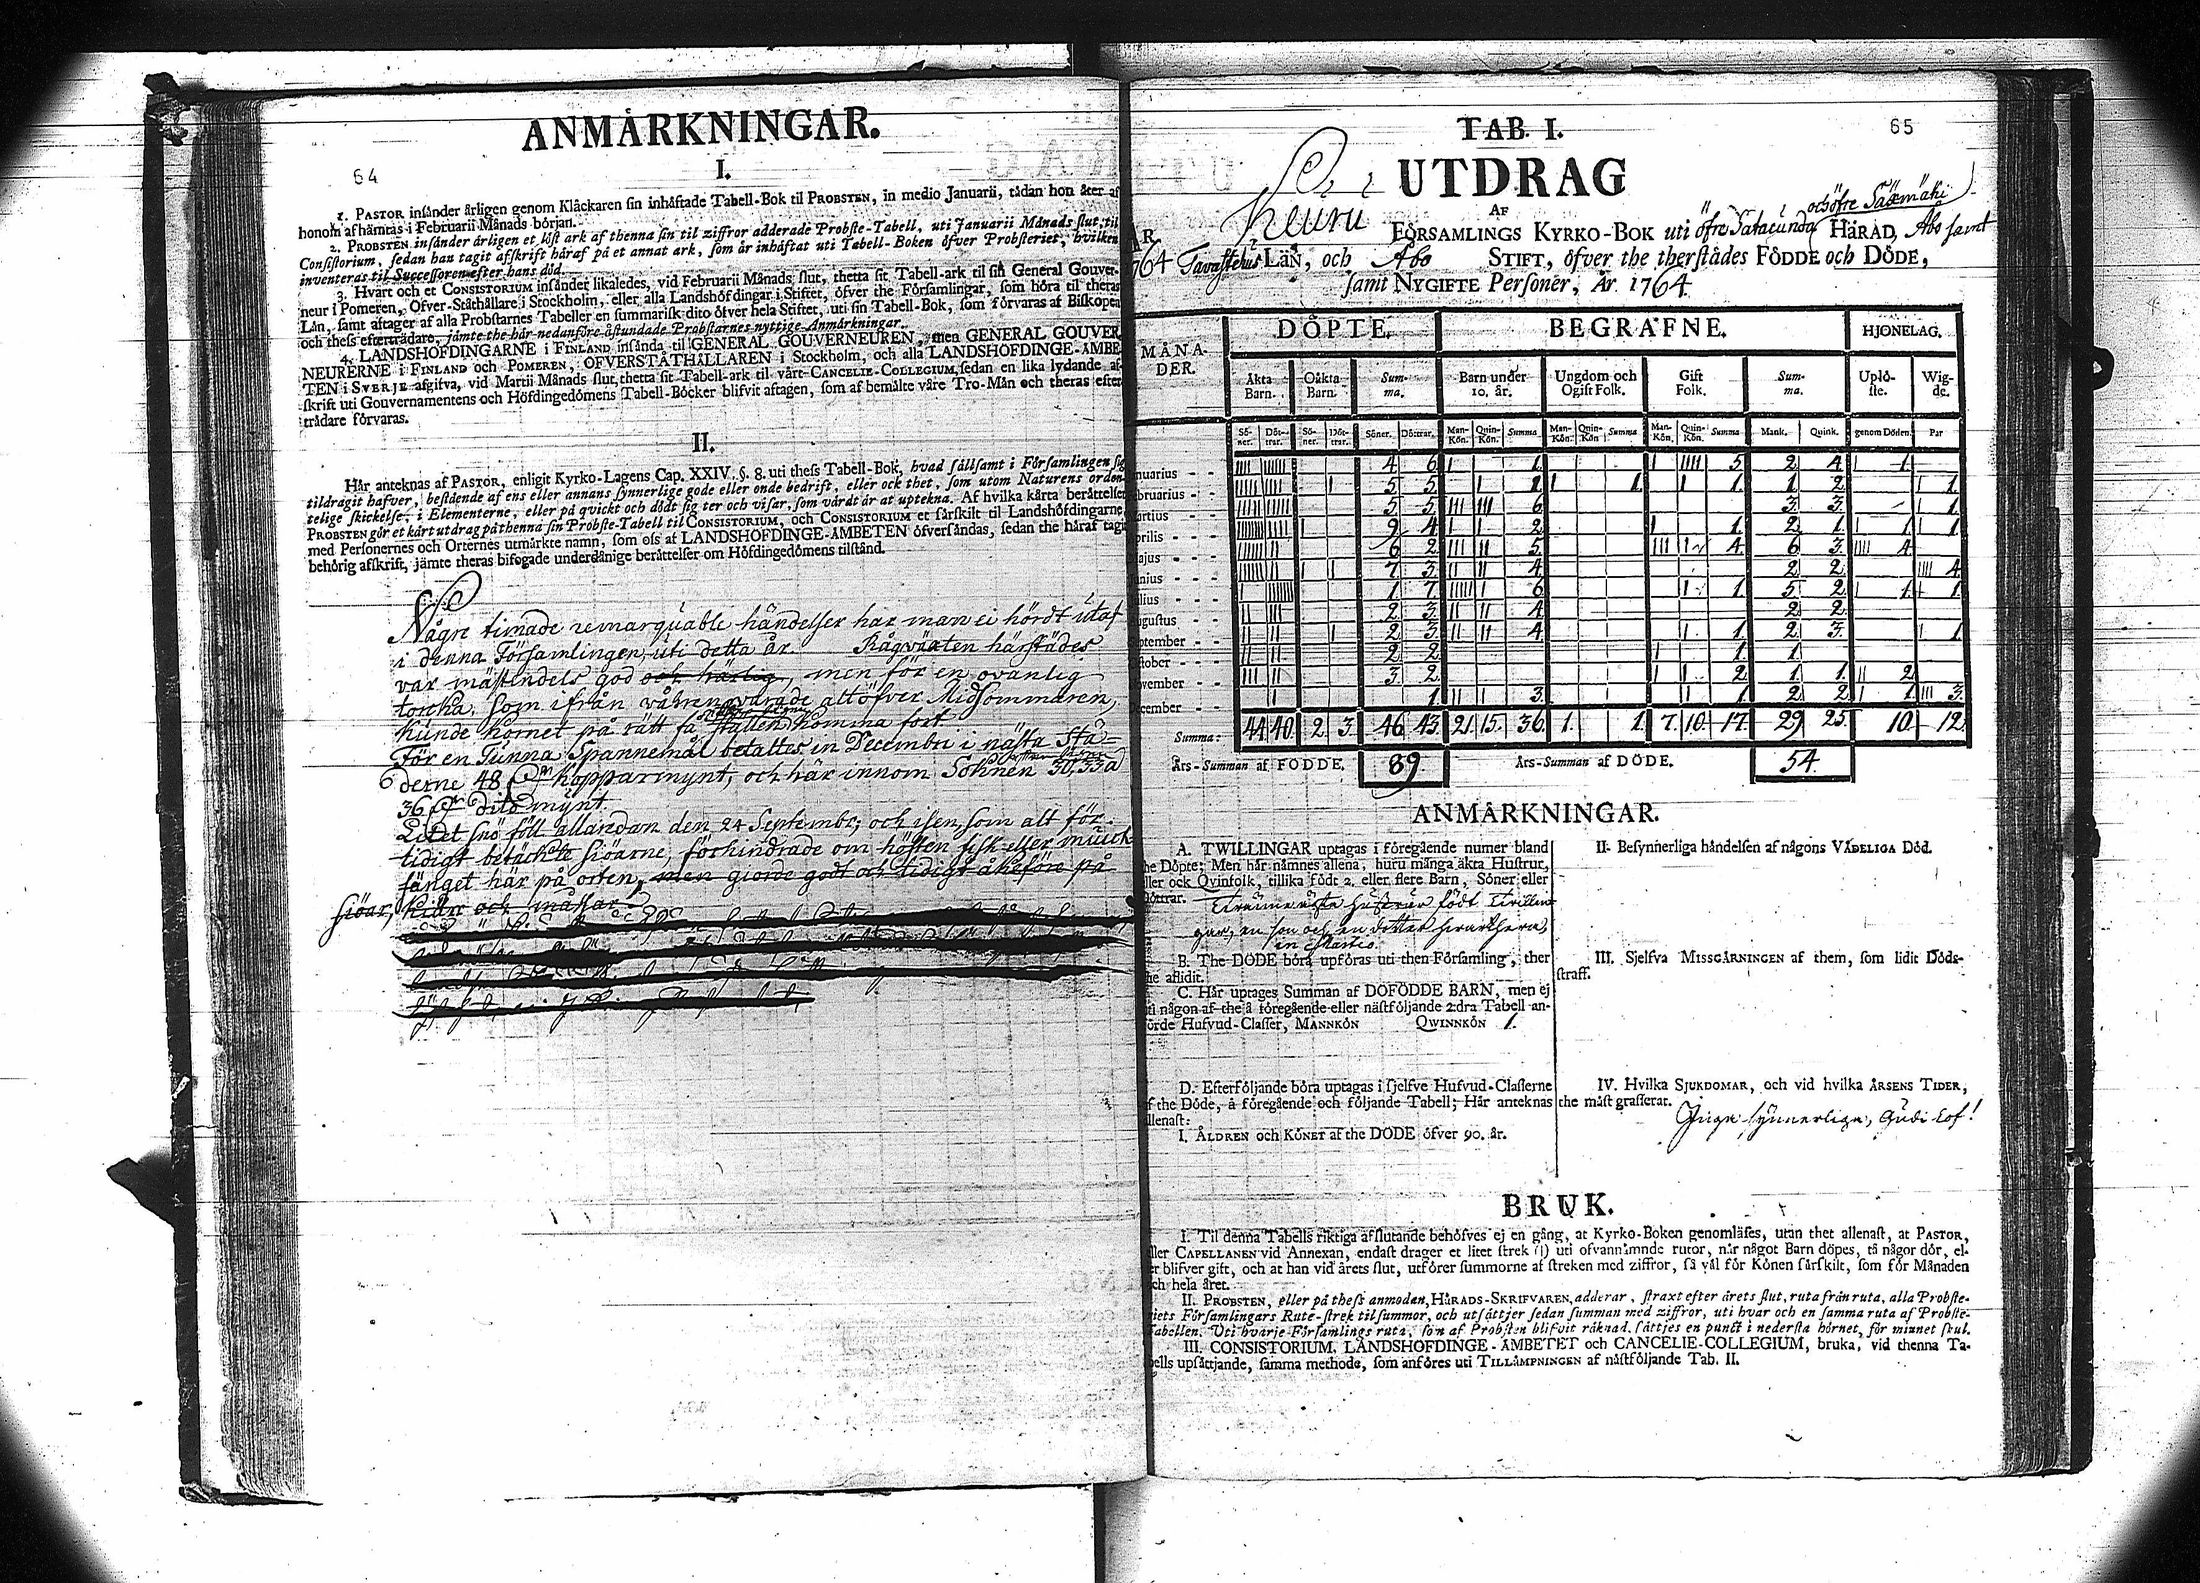 64
ANMÄRKNINGAR.
I.
1. PASTOR insånder årligen genom Klåckaren sin inhåftade Tabell-Bok til PROBSTEN, in medio Januarii, tådan hon åter af
honom afhåmtas i Februarii Månads början.
2. PROBSTEN insånder årligen et löst ark af thenna sin til ziffror adderade Probste-Tabell, uti Januarii Månads slut, til
Consistorium, sedan han tagit afskrift håraf på et annat ark, som år inhåftat uti Tabell-Boken öfver Probsteriet, hvilken
inventeras til Successoren efter hans död.
3. Hvart och et CONSISTORIUM insånder likaledes, vid Februarii Månads slut, thetta sit Tabell-ark til sin General Gouver-
neur i Pomeren, Öfver-Ståthållare i Stockholm, eller alla Landshöfdingar i Stiftet, öfver the Församlingar, som höra til theras
Lån, samt aftager af alla Probstarnes Tabeller en summarisk dito öfver hela Stiftet, uti sin Tabell-Bok, som förvaras af Biskopen
och thess eftertrådare, jämte the hår nedanföre åstundade Probstarnes nyttige Anmårkningar.
4. LANDSHÖFDINGARNE i FINLAND insånda til GENERAL GOUVERNEUREN, men GENERAL GOUVER
NEURERNE i FINLAND och POMEREN, ÖFVERSTÅTHÅLLAREN i Stockholm, och alla LANDSHÖFDINGE-ÅMBE
TEN i SVERJE afgifva, vid Martii Månads slut, thetta sit Tabell-ark til vårt CANCELIE-COLLEGIUM, sedan en lika lydande af-
skrift uti Gouvernamentens och Höfdingedömens Tabell-Böcker blifvit aftagen, som af bemålte våre Tro-Mån och theras efter
trådare förvaras.
II.
Hår anteknas af PASTOR, enligit Kyrko-Lagens Cap. XXIV. §. 8. uti thess Tabell-Bok, hvad sållsamt i Församlingen sig
tildragit hafver, bestående af ens eller annans synnerlige gode eller onde bedrift, eller ock thet, som utom Naturens orden-
telige skickelse, i Elementerne, eller på qvickt och dödt sig ter och visar, som vårdt år at uptekna. Af hvilka kårta beråttelser
PROBSTEN gör et kårt utdrag på thenna sin Probste-Tabell til CONSISTORIUM, och CONSISTORIUM et sårskilt til Landshöfdingarne,
med Personernes och Orternes utmårkte namn, som oss af LANDSHÖFDINGE-ÅMBETEN öfversåndas, sedan the håraf tagit
behörig afskrift, jämte theras bifogade underdånige beråttelser om Höfdingedömens tilstånd.
Någre timade remarquable händelser har man ei hördt utaf
i denna Församlingen, uti detta år Rågväxten härstädes
var mästendels god och härlig, men för en ovanlig
torcka, som ifrån våhren warade altöfver Midsommaren,
kunde kornet på rätt få ställen komma fort.
För en Tunna Spannemål betaltes in Decembri i nästa Stä=
derne 48 kopparmynt, och här innom Soknen 30, 33 a
36 dito mynt.
Litet snö föll allaredan den 24 Septembr; och isen, som alt för
tidigt betäckte siöarne, förhindrade om hösten fisk eller
fänget här på orten, men giorde godt och tidigt åkeföre på
siöar, kiärr och måssar.
65
TAB. I.
UTDRAG
AF
Keuru FÖRSAMLINGS KYRKO-BOK uti öfre Satacunda och öfre Sääxmäki HÄRAD, Åbo samt
Tavastehus LÄN, och Åbo STIFT, öfver the therstådes FÖDDE och DÖDE,
samt NYGIFTE Personer, År 1764
1764
MÅNA-
DER.
DÖPTE. BEGRAFNE. HJONELAG.
Åkta Barn. Oåkta Barn. Sum-ma. Barn under 10. år. Ungdom och Ogift Folk. Gift Folk. Sum-ma. Uplö-ste. Wig-de.
Sö-ner. Döt-trar. Sö-ner. Döt-trar. Söner. Döttrar. Man-Kön. Quin-Kön. Summa Man-Kön. Quin-Kön. Summa Man-Kön. Quin-Kön. Summa Mank. Quink. genom Döden. Par
nuarius - - 4 6 1. 5 2 4 1.
bruarius - - 5 5 1 1. 1. 1 2 1.
artius - - 5 5 6 3. 3. 1.
prilis - - 9 4 2. 1. 2 1. 1. 1.
ajus - - 6 2 5. 4. 6 3. 4.
unius - - 7 3 4. 2 2. 4.
ulius - - 1 7 6 1. 5 2. 1. 1.
ugustus - - 2 3 4. 2 2.
ptember - - 2 3 4. 1. 2 3. 1.
ktober - - 2 2 1. 1.
ovember - - 3 2 2. 1. 1. 2.
cember - - 1. 3. 1. 2 2. 1. 3.
Summa: 44 40 2. 3. 46 43 21. 15. 36. 1. 1. 7. 10. 17. 29 25. 10. 12.
Års-Summan af FÖDDE. 89 Års-Summan af DÖDE. 54.
ANMÄRKNINGAR.
A. TWILLINGAR uptagas i föregående numer bland
he Döpte; Men hår nåmnes allena, huru många åkta Hustrur,
ller ock Qvinfolk, tillika födt 2. eller flere Barn, Söner eller
öttrar. hustrur födt Tvillin
gar, en son och en dotter
in Martio.
B. The DÖDE böra upföras uti then Församling, ther
he aflidit.
C. Hår uptages Summan af DÖFÖDDE BARN, men ej
ti någon af the å föregående eller nåstföljande 2:dra Tabell an-
örde Hufvud-Classer, MANNKÖN QWINNKÖN 1.
D. Efterföljande böra uptagas i sjelfve Hufvud-Classerne
f the Döde, å föregående och följande Tabell; Hår anteknas
llenast:
I. ÅLDREN och KÖNET af the DÖDE öfver 90. år.
II. Besynnerliga håndelsen af någons VÅDELIGA Död.
III. Sjelfva MISSGÅRNINGEN af them, som lidit Döds-
straff.
IV. Hvilka SJUKDOMAR, och vid hvilka ÅRSENS TIDER,
the måst grasserat.
Inga synnerliga, Gudi lof!
BRUK.
I. Til denna Tabells riktiga afslutande behöfves ej en gång, at Kyrko-Boken genomläses, utan thet allenast, at PASTOR,
ller CAPELLANEN vid Annexan, endast drager et litet strek (|) uti ofvannåmnde rutor, når något Barn döpes, tå någor dör, el-
r blifver gift, och at han vid årets slut, utförer summorne af streken med ziffror, så vål för Könen sårskilt, som för Månaden
ch hela året.
II. PROBSTEN, eller på thess anmodan, HÅRADS-SKRIFVAREN, adderar, straxt efter årets slut, ruta från ruta, alla Probste-
iets Församlingars Rute-strek til summor, och utsåttjer sedan summan med ziffror, uti hvar och en samma ruta af Probste-
abellen. Uti hvarje Församlings ruta, som af Probsten blifvit råknad, såttjes en punct i nedersta hörnet, för minnet skul.
III. CONSISTORIUM, LANDSHÖFDINGE-ÅMBETET och CANCELIE-COLLEGIUM, bruka, vid thenna Ta-
ells upsåttjande, samma methode, som anföres uti TILLÅMPNINGEN af nåstföljande Tab. II.